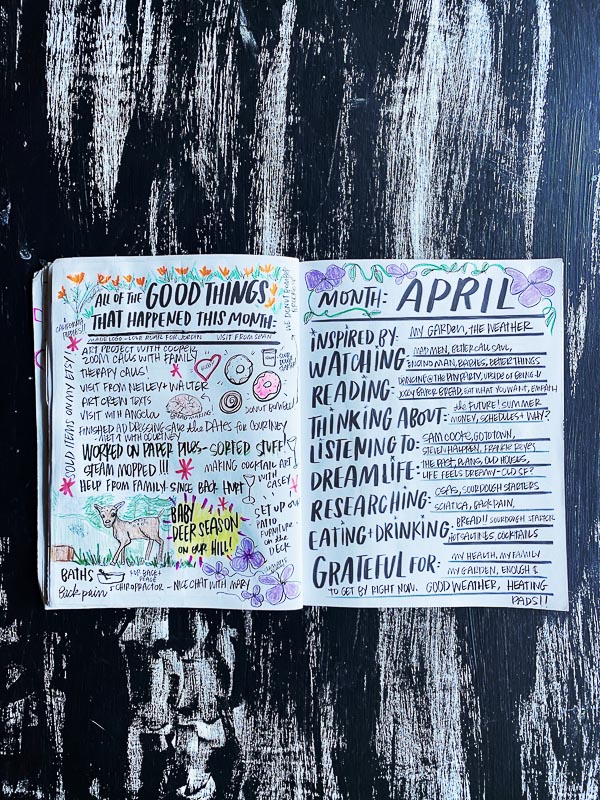 ALL OF THE GOOD THINGS
THAT HAPPENED THIS MONTH:
MADE LOGO - LOVE RUMIE FOR JORDAN VISIT FROM SEAN
CALIFORNIA POPPIES!
SOLD ITEMS ON MY ETSY!
ART PROJECT WITH COOPER
ZOOM CALLS WITH FAMILY
THERAPY CALLS!
VISIT FROM NELLEY + WALTER
ART CREW TEXTS
VISIT WITH ANGELA
DONUT
FINISHED ADDRESSING SAVE the DATES for COURTNEY
MET W/ WITH COURTNEY
WORKED ON PAPER PILES - SORTED STUFF!
STEAM MOPPED !!!
MAKING COCKTAIL ART
WITH
CASEY
HELP FROM FAMILY SINCE BACK HURT
SET UP OUR
PATIO
FURNITURE
on the
DECK
BABY
DEER SEASON
on our HILL!
BATHS
FOR BACK
Back pain
CHIROPRACTOR - NICE CHAT WITH MARY
MONTH: APRIL
INSPIRED BY: MY GARDEN, THE WEATHER
WATCHING MAD MEN, BETTER CALL SAUL,
ENCINO MAN, BABIES, BETTER THINGS
READING: DANCING @ THE PITY PARTY, UPSIDE OF BEING ↓
JOSEY BAKER BREAD, EAT WHAT YOU WANT, EMPATH
THINKING ABOUT: the FUTURE! SUMMER
MONEY, SCHEDULES + WHY?
LISTENING TO: SAM COOKE, GO TO TOWN,
STEVEN HAPPEN, FRANKIE REYES
DREAM LIFE: THE PAST, PLANS, OLD HOUSES,
LIFE FEELS DREAMY - OLD SF?
RESEARCHING: CSAS, SOURDOUGH STARTERS
SCIATICA, BACK PAIN,
EATING + DRINKING: BREAD!! SOURDOUGH STARTER
HOT SALTINES, COCKTAILS
GRATEFUL FOR: MY HEALTH, MY FAMILY
MY GARDEN, ENOUGH $
TO GET BY RIGHT NOW. GOOD WEATHER, HEATING
PADS!!